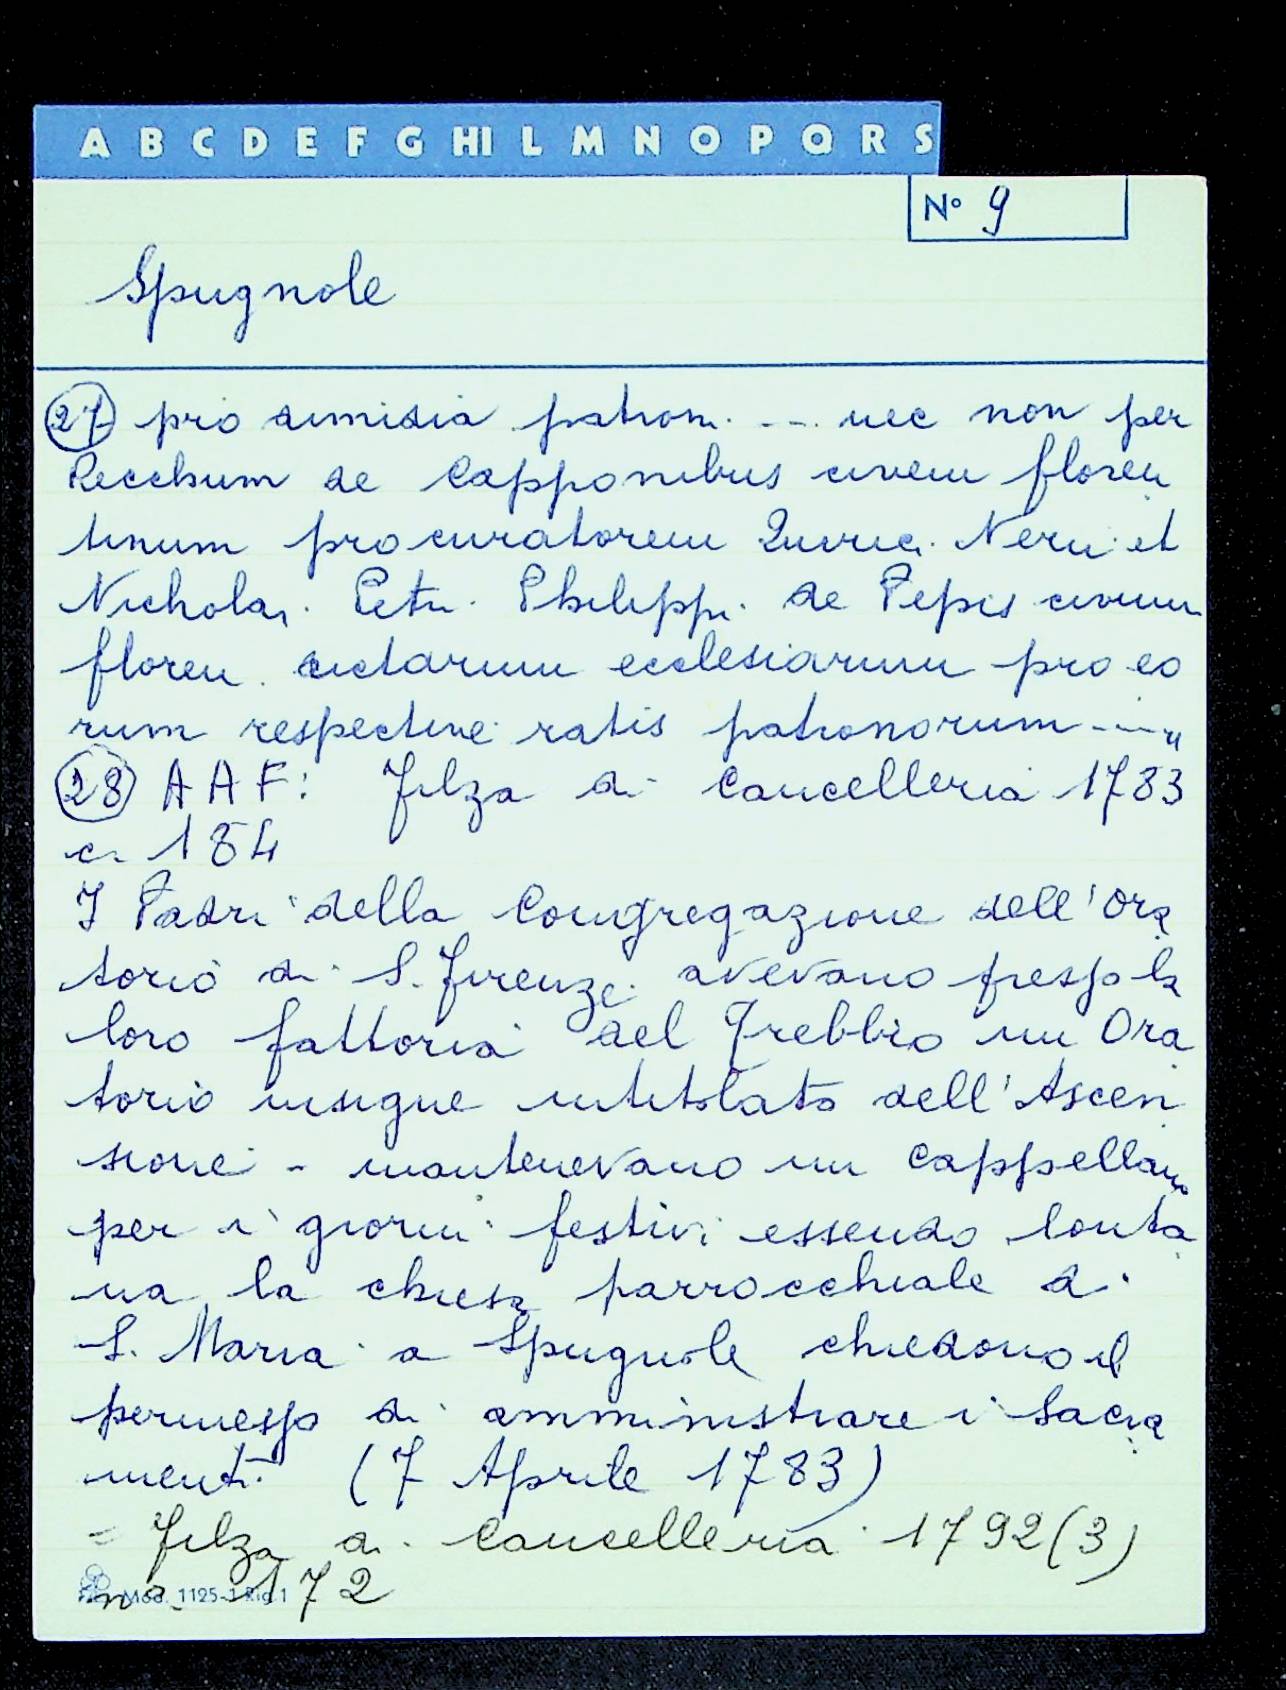 A B C D E F G HI L M N O P Q R S
N° 9
Spugnole
27 pro dimidia patron. --- nec non per
Recchum de Capponibus civem floren
tinum procuratorem Neri et
Nicholai. Petri. Philippi. de Pepis civium
floren. dictarum ecclesiarum pro eo
rum respective ratis patronorum ----"
28 A A F: Filza di Cancelleria 1783
c. 184
I Padri della Congregazione dell'Ora
torio di S. Firenze avevano presso la
loro fattoria del Trebbio un Ora
torio insigne intitolato dell'Ascen
sione - mantenevano un cappellano
per i giorni festivi essendo lonta
na la chiesa parrocchiale di
S. Maria a Spugnole chiedono il
permesso di amministrare i Sacra
menti (7 Aprile 1783)
= Filza di Cancelleria 1792 (3)
n°. 172
Mod. 1125-1 Rig.1